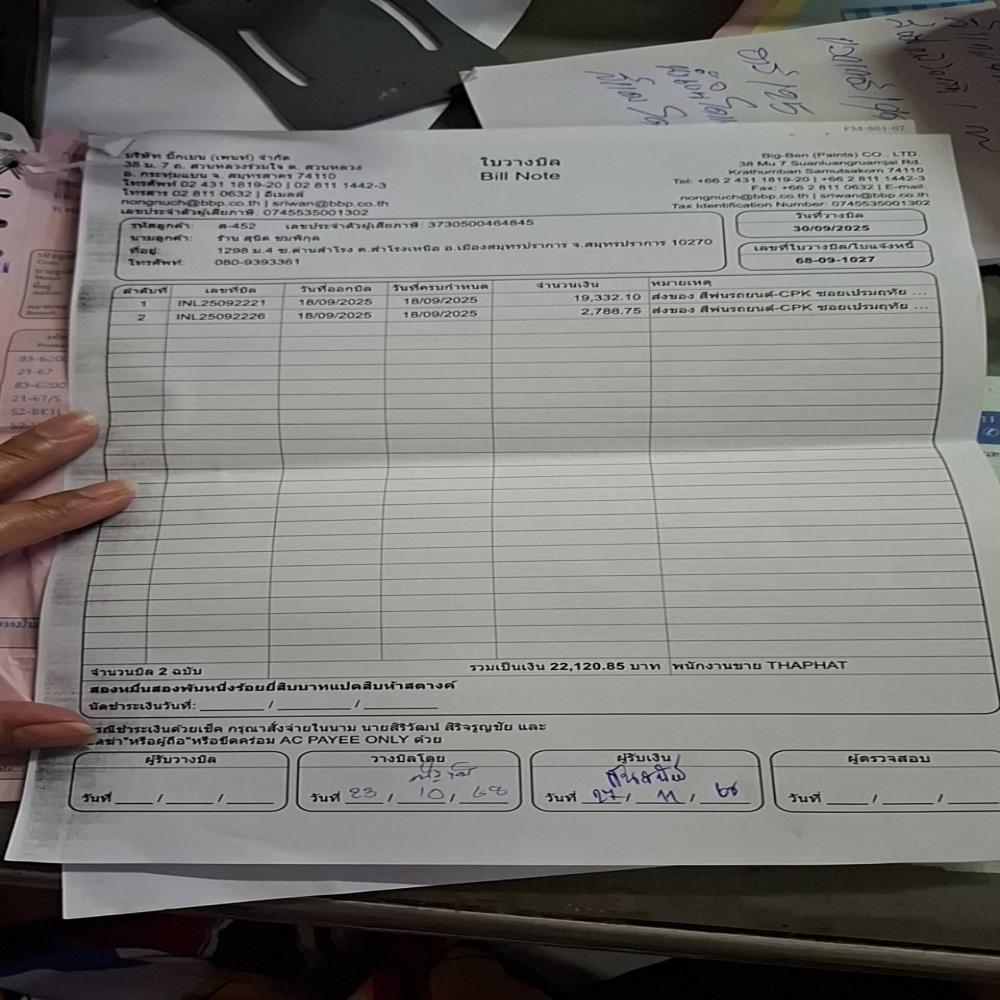 FM-S01-02
บริษัท บิ๊กเบน (เพนท์) จำกัด
38 ม. 7 ถ. สวนหลวงร่วมใจ ต. สวนหลวง
อ. กระทุ่มแบน จ. สมุทรสาคร 74110
โทรศัพท์ 02 431 1819-20 | 02 811 1442-3
โทรสาร 02 811 0632 | อีเมลล์
nongnuch@bbp.co.th | sriwan@bbp.co.th
เลขประจำตัวผู้เสียภาษี: 0745535001302
ใบวางบิล
Bill Note
Big-Ben (Paints) CO., LTD.
38 Mu 7 Suanluangruamjai Rd.
Krathumban Samutsakorn 74110
Tel: +66 2 431 1819-20 | +66 2 811 1442-3
Fax: +66 2 811 0632 | E-mail:
nongnuch@bbp.co.th | sriwan@bbp.co.th
Tax Identification Number: 0745535001302
รหัสลูกค้า: ส-452 เลขประจำตัวผู้เสียภาษี: 3730500464845
นามลูกค้า: ร้าน สุนิต ชมพิกุล
ที่อยู่: 1298 ม.4 ซ.ด่านสำโรง ต.สำโรงเหนือ อ.เมืองสมุทรปราการ จ.สมุทรปราการ 10270
โทรศัพท์: 080-9393361
วันที่วางบิล
30/09/2025
เลขที่ใบวางบิล/ใบแจ้งหนี้
68-09-1027
ลำดับที่ เลขที่บิล วันที่ออกบิล วันที่ครบกำหนด จำนวนเงิน หมายเหตุ
1 INL25092221 18/09/2025 18/09/2025 19,332.10 ส่งของ สีพ่นรถยนต์-CPK ซอยเปรมฤทัย ...
2 INL25092226 18/09/2025 18/09/2025 2,788.75 ส่งของ สีพ่นรถยนต์-CPK ซอยเปรมฤทัย ...
จำนวนบิล 2 ฉบับ รวมเป็นเงิน 22,120.85 บาท พนักงานขาย THAPHAT
สองหมื่นสองพันหนึ่งร้อยยี่สิบบาทแปดสิบห้าสตางค์
นัดชำระเงินวันที่: ______ / ______ / ______
กรณีชำระเงินด้วยเช็ค กรุณาสั่งจ่ายในนาม นายสิริวัฒน์ สิริจรูญชัย และ
"หรือผู้ถือ"หรือขีดคร่อม AC PAYEE ONLY ด้วย
ผู้รับวางบิล วางบิลโดย ผู้รับเงิน ผู้ตรวจสอบ
วันที่ ___ / ___ / ___ วันที่ 23 / 10 / 68 วันที่ 27 / 11 / 68 วันที่ ___ / ___ / ___
83-6200
21-67
83-6200
21-67/S